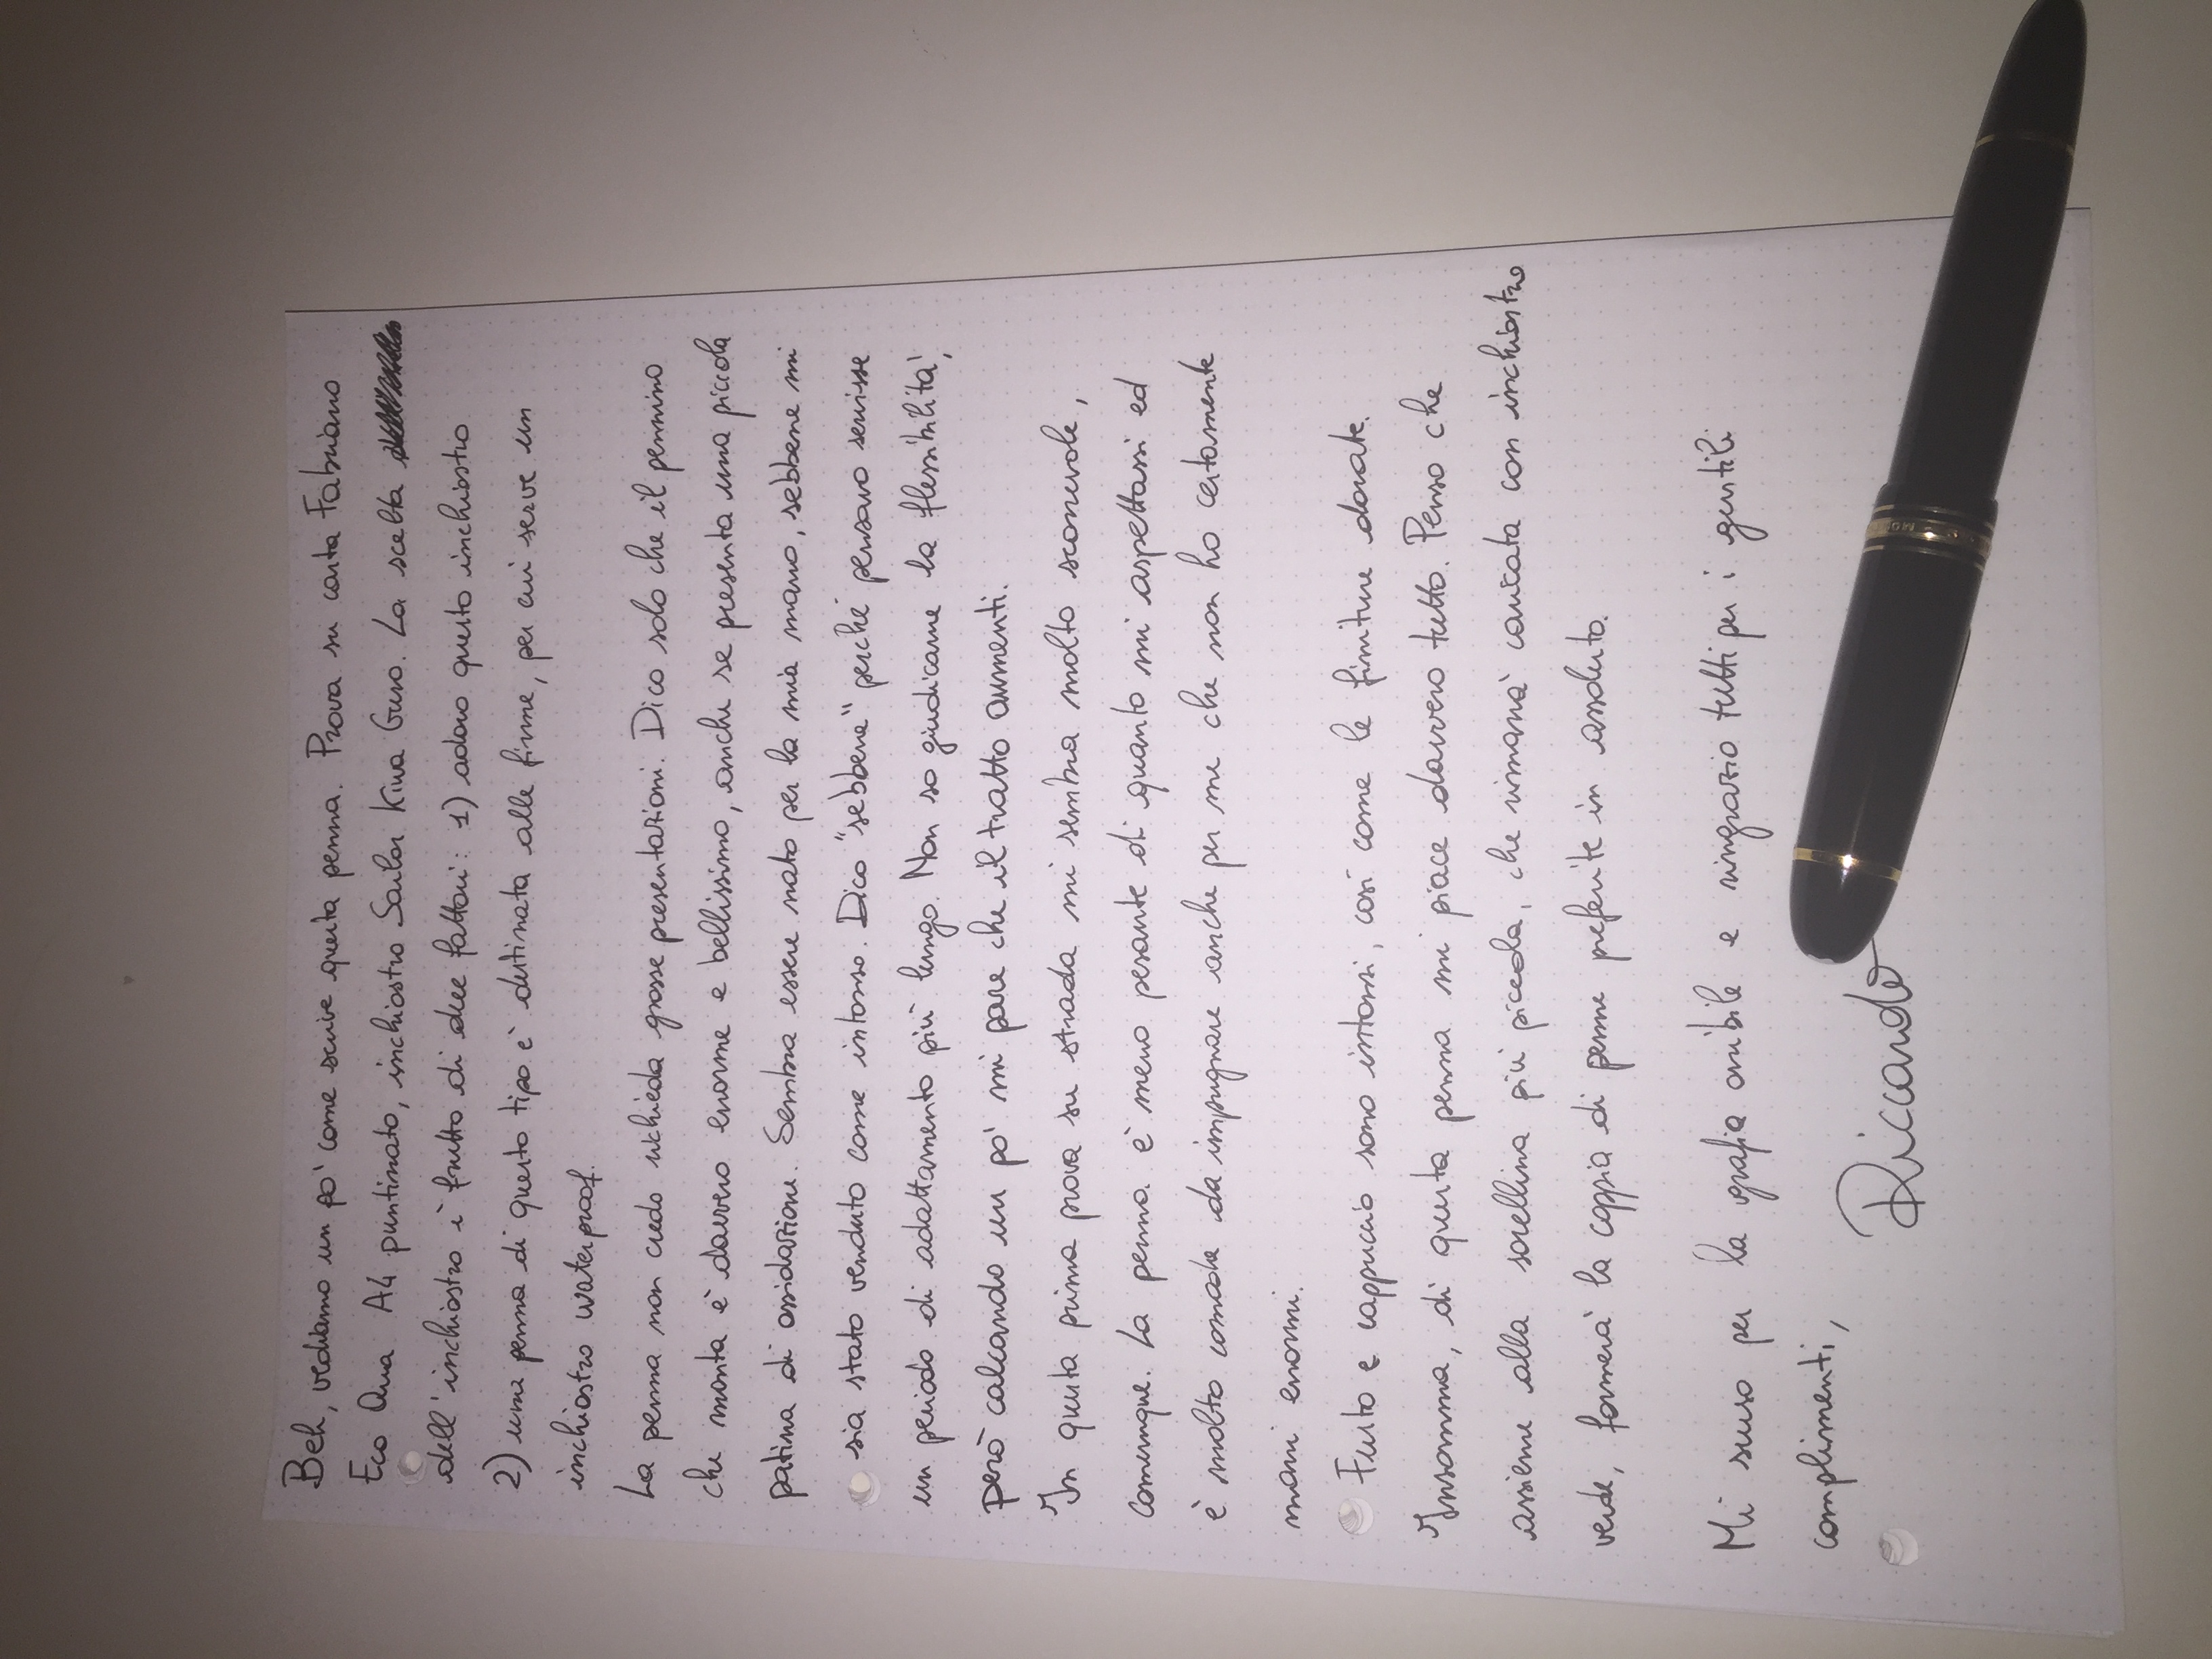 Beh, vediamo un po' come scrive questa penna. Prova su carta Fabriano
Eco Qua A4 puntinato, inchiostro Sailor Kiwa Guro. La scelta
dell'inchiostro è frutto di due fattori: 1) adoro questo inchiostro
2) una penna di questo tipo è destinata alle firme, per cui serve un
inchiostro waterproof.
La penna non credo richieda grosse presentazioni. Dico solo che il pennino
che monta è davvero enorme e bellissimo, anche se presenta una piccola
patina di ossidazione. Sembra essere nato per la mia mano, sebbene mi
sia stato venduto come intonso. Dico "sebbene" perché pensavo servisse
un periodo di adattamento più lungo. Non so giudicarne la flessibilità,
però calcando un po' mi pare che il tratto aumenti.
In questa prima prova su strada mi sembra molto scorrevole,
comunque. La penna è meno pesante di quanto mi aspettassi ed
è molto comoda da impugnare anche per me che non ho certamente
mani enormi.
Fusto e cappuccio sono intonsi, così come le finiture dorate.
Insomma, di questa penna mi piace davvero tutto. Penso che
assieme alla sorellina più piccola, che rimarrà caricata con inchiostro
verde, formerà la coppia di penne preferite in assoluto.
Mi scuso per la grafia orribile e ringrazio tutti per i gentili
complimenti,
Riccardo